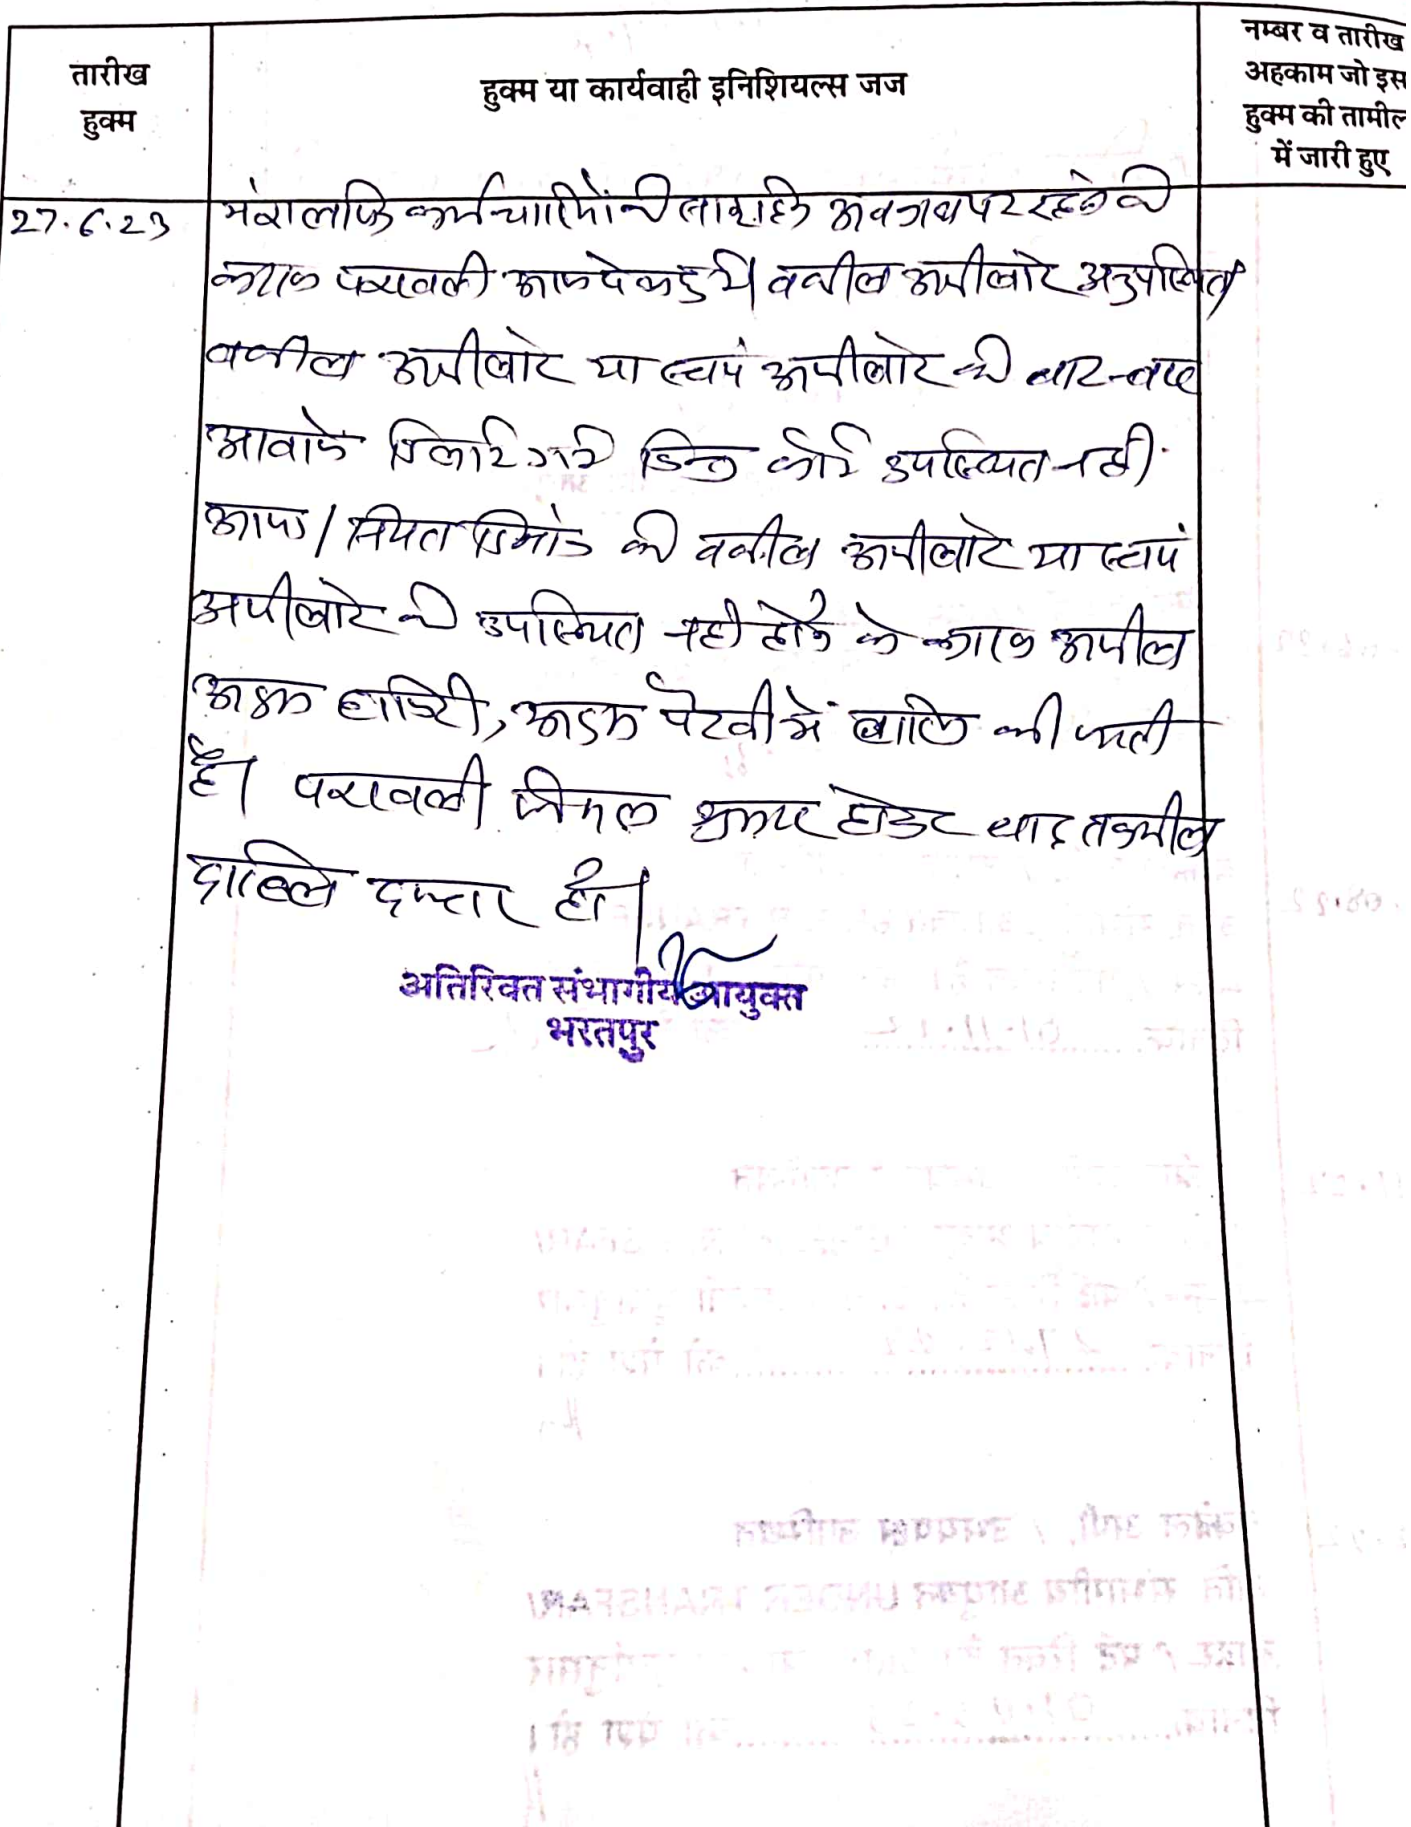 तारीख
हुक्म
हुक्म या कार्यवाही इनिशियल्स जज
नम्बर व तारीख
अहकाम जो इस
हुक्म की तामील
में जारी हुए
27.6.23
मंत्रालयिक कर्मचारियों के सामूहिक अवकाश पर रहने के
कारण पत्रावली आज पेश हुई। वकील अपीलांट अनुपस्थित
वकील अपीलांट या स्वयं अपीलांट को बार-बार
आवाजें दिलाई गई किन्तु कोई उपस्थित नहीं
आया। नियत दिनांक को वकील अपीलांट या स्वयं
अपीलांट के उपस्थित नहीं होने के कारण अपील
अदम हाजिरी, अदम पैरवी में खारिज की जाती
है। पत्रावली फैसल शुमार होकर बाद तकमील
दाखिल दफ्तर हो।
अतिरिक्त संभागीय आयुक्त
भरतपुर